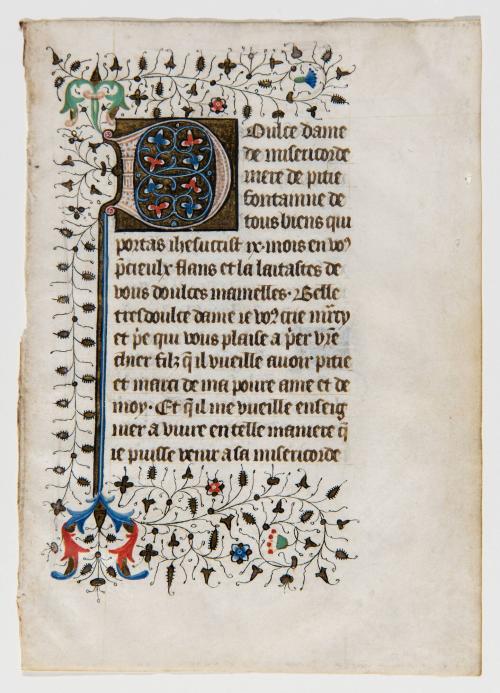 Doulce dame
de misericorde
mere de pitie
fontainne de
tous biens qui
portas ihesucrist ix. mois en voꝰ
p̄cieulx flans et la laitastes de
vous doulces mamelles. Belle
tresdoulce dame ie voꝰ crie m̄cy
et p̄e qui vous plaise a p̄er vr̄e
chier filz q̄ il vueille auoir pitie
et marci de ma poure ame et de
moy. Et q̄ il me vueille enseig
nier a viure en telle maniere q̄
ie puisse venir a sa misericorde